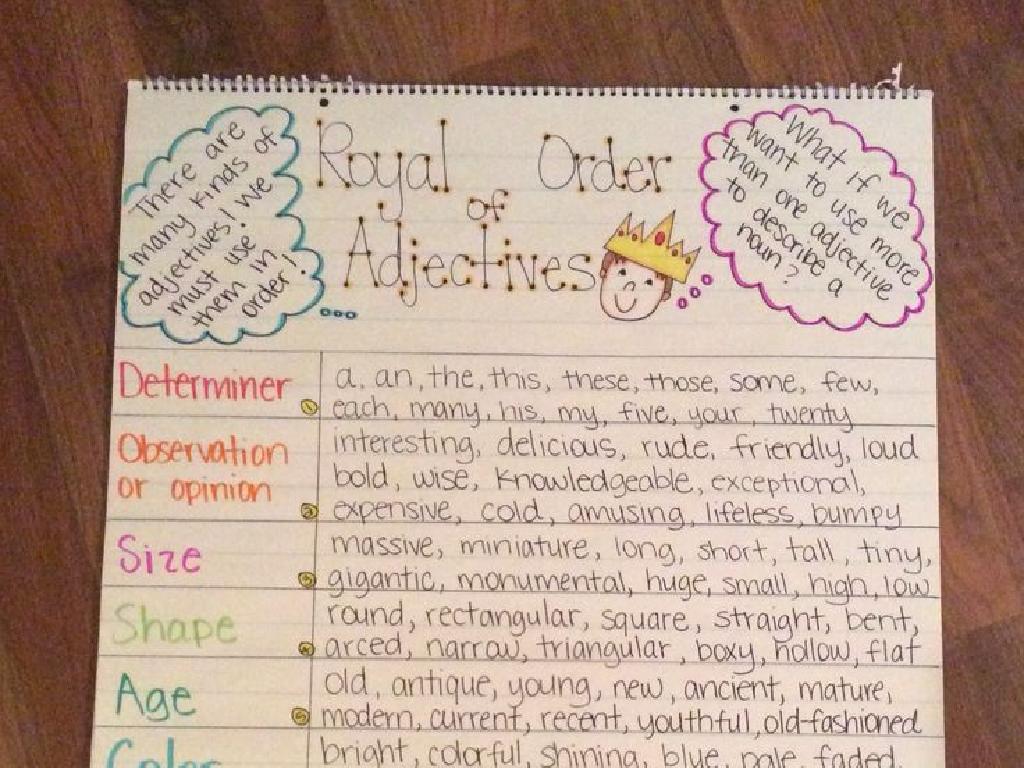 There are
many kinds of
adjectives! We
must use
them in
order!
Royal Order
of
Adjectives
What if we
want to use more
than one adjective
to describe a
noun?
Determiner
1
a, an, the, this, these, those, some, few,
each, many, his, my, five, your, twenty
Observation
or opinion
2
interesting, delicious, rude, friendly, loud
bold, wise, knowledgeable, exceptional,
expensive, cold, amusing, lifeless, bumpy
Size
3
massive, miniature, long, short, tall, tiny,
gigantic, monumental, huge, small, high, low
Shape
4
round, rectangular, square, straight, bent,
arced, narrow, triangular, boxy, hollow, flat
Age
5
old, antique, young, new, ancient, mature,
modern, current, recent, youthful, old-fashioned
Color
bright, colorful, shining, blue, pale, faded,